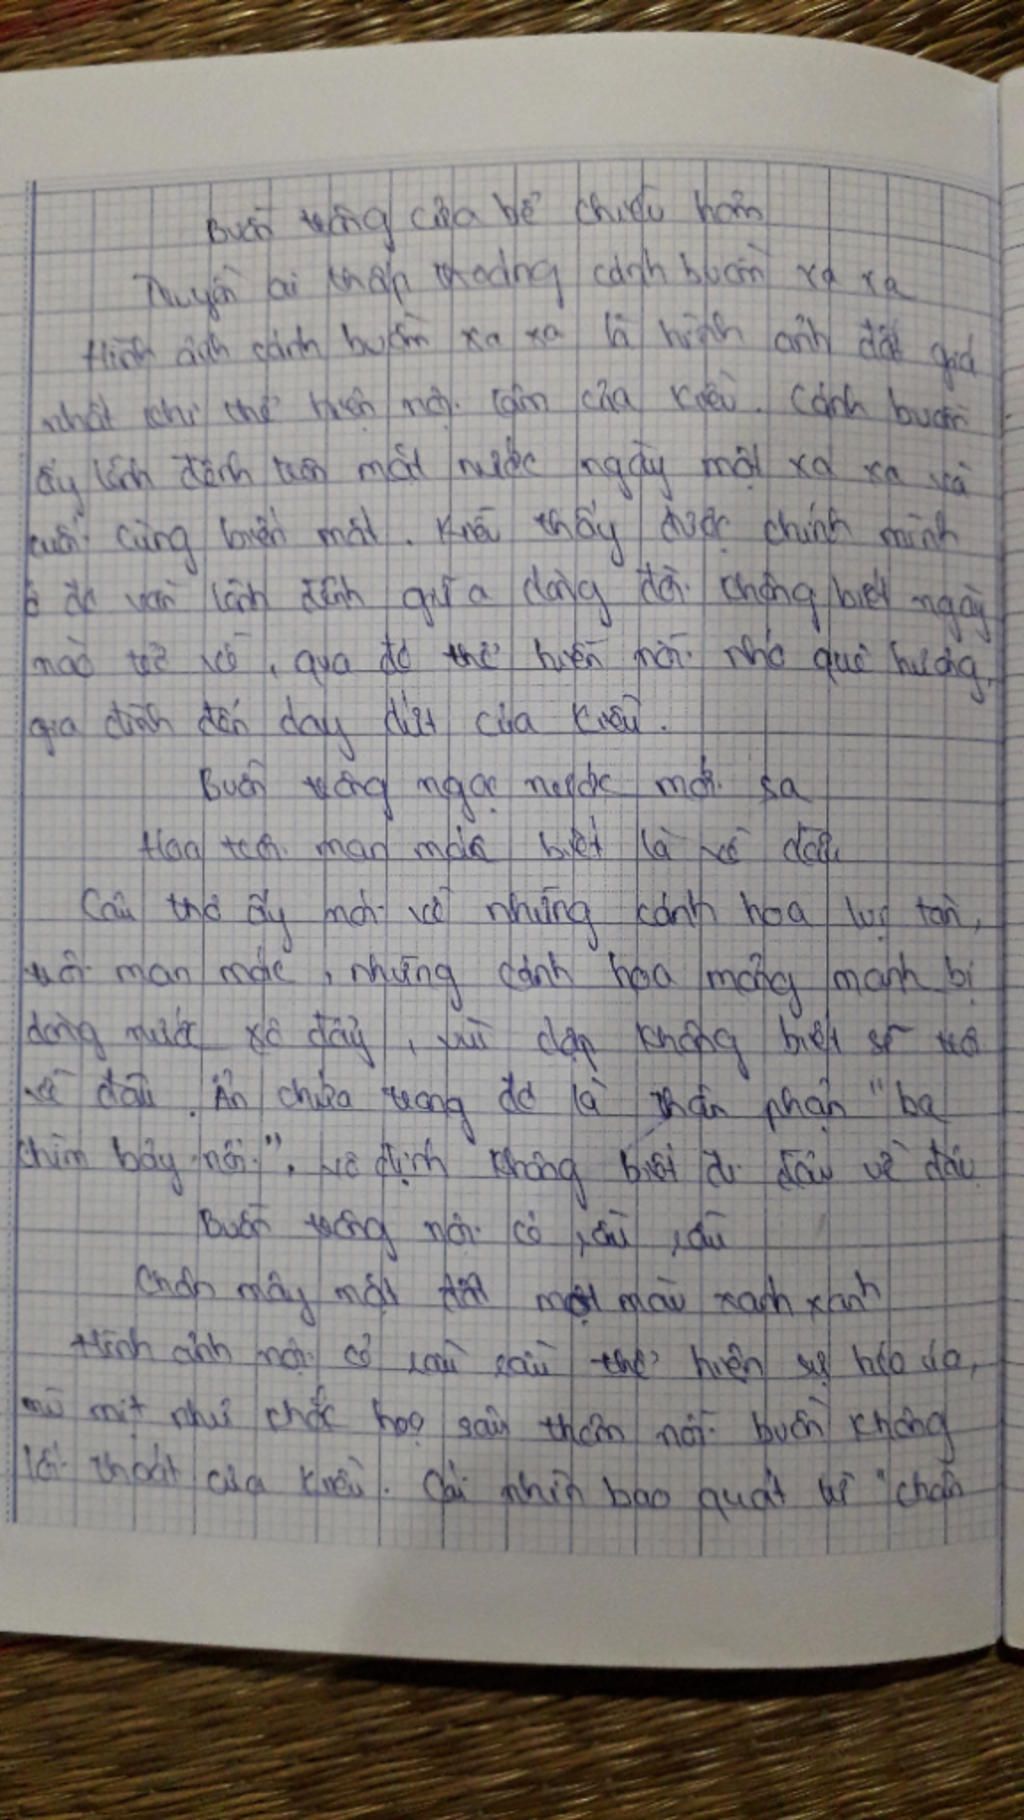 Buồn trông cửa bể chiều hôm
Thuyền ai thấp thoáng cánh buồm xa xa
Hình ảnh cánh buồm xa xa là hình ảnh đắt giá
nhất khi thể hiện nội tâm của Kiều. Cánh buồm
ấy lênh đênh trên mặt nước ngày một xa xa và
cuối cùng biến mất. Kiều thấy được chính mình
ở đó vẫn lênh đênh giữa dòng đời chẳng biết ngày
nào trở về, qua đó thể hiện nỗi nhớ quê hương,
gia đình đến day dứt của Kiều.
Buồn trông ngọn nước mới sa
Hoa trôi man mác biết là về đâu
Câu thơ ấy nói về những cánh hoa lụi tàn,
trôi man mác, những cánh hoa mỏng manh bị
dòng nước xô đẩy, vùi dập không biết sẽ trôi
về đâu. Ẩn chứa trong đó là thân phận "ba
chìm bảy nổi", vô định không biết đi đâu về đâu
Buồn trông nội cỏ rầu rầu
Chân mây mặt đất một màu xanh xanh
Hình ảnh nội cỏ rầu rầu thể hiện sự héo úa,
mù mịt như chốc hoạ sâu thêm nỗi buồn không
lối thoát của Kiều. Cái nhìn bao quát từ "chân